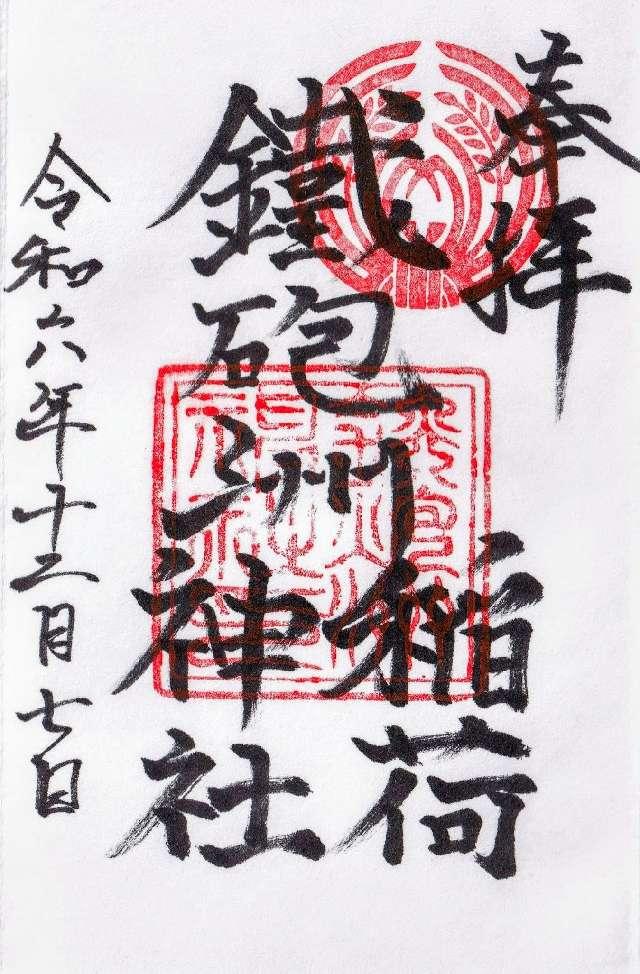 奉拝
鐵砲洲
稲荷
神社
令和六年十二月七日